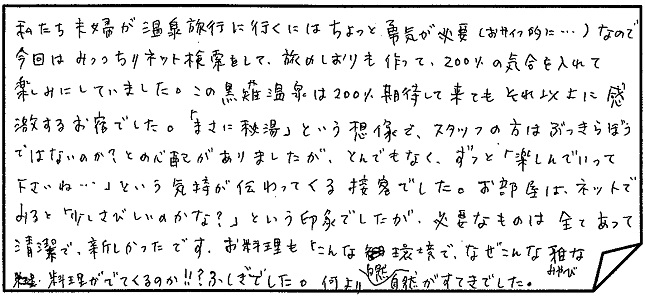 私たち夫婦が温泉旅行に行くにはちょっと勇気が必要(おサイフ的に…)なので
今回はみっっちりネット検索をして、旅のしおりも作って、200%の気合を入れて
楽しみにしていました。この黒薙温泉は200%期待して来てもそれ以上に感
激するお宿でした。「まさに秘湯」という想像で、スタッフの方はぶっきらぼう
ではないのか?との心配がありましたが、とんでもなく、ずっと「楽しんでいって
下さいね…」という気持が伝わってくる接客でした。お部屋は、ネットで
みると「少しさびしいのかな?」という印象でしたが、必要なものは全てあって
清潔で、新しかったです。お料理も「こんな環境で、なぜこんな雅な
みやび
料理がでてくるのか!!?ふしぎでした。何より自然がすてきでした。